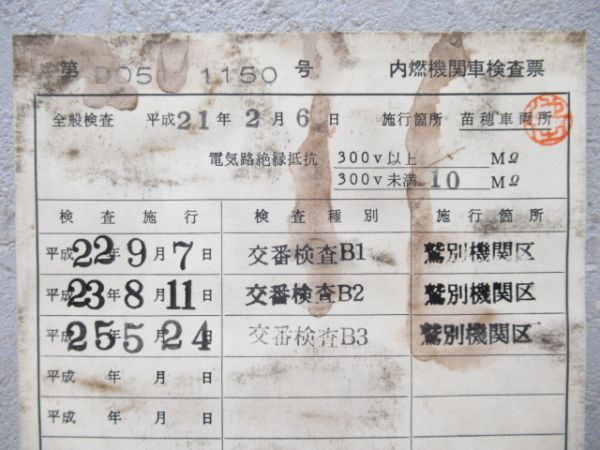 第 DD51 1150 号 内燃機関車検査票
全般検査 平成21年2月6日 施行箇所 苗穂車両所
電気路絶縁抵抗 300v以上 MΩ
300v未満 10 MΩ
検査施行 検査種別 施行箇所
平成22年9月7日 交番検査B1 鷲別機関区
平成23年8月11日 交番検査B2 鷲別機関区
平成25年5月24日 交番検査B3 鷲別機関区
平成 年 月 日
平成 年 月 日